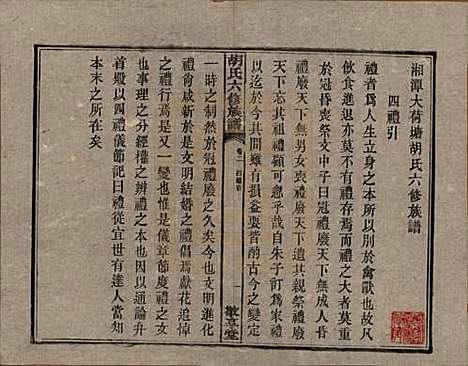 湘潭大荷塘胡氏六修族譜
四禮引
禮者為人生立身之本所以別於禽獸也故凡
飲食進退亦有禮存焉而其大者莫重
於冠昏喪祭文中子曰冠禮廢天下無成人昏
禮廢天下無男女喪禮廢天下遺其親祭禮廢
天下忘其祖禮顧可忽乎哉自朱子訂為家禮
以迄於今其間雖有損益要皆酌古今之變定
胡氏六修族譜
卷二
一
敬享堂
一時之制然於冠禮廢之久矣今也文明進化
於昏咸尚文明結婚之禮倡為獻花追悼
之禮行焉是又一變也惟是儀章節度
也事理之分經權之辨禮之本也因以通論弁
首殿以四禮儀節記曰禮從宜世有達人當知
本末之所在矣